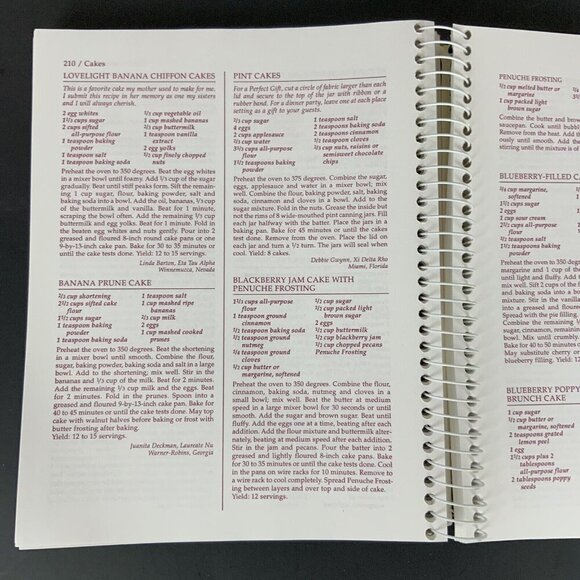 210 / Cakes
LOVELIGHT BANANA CHIFFON CAKES
This is a favorite cake my mother used to make for me.
I submit this recipe in her memory as one my sisters
and I will always cherish.
2 egg whites
1½ cups sugar
2 cups sifted
all-purpose flour
1 teaspoon baking
powder
1 teaspoon salt
1 teaspoon baking soda
⅓ cup vegetable oil
1 cup mashed bananas
⅔ cup buttermilk
1 teaspoon vanilla
extract
2 egg yolks
½ cup finely chopped
nuts
Preheat the oven to 350 degrees. Beat the egg whites
in a mixer bowl until foamy. Add ½ cup of the sugar
gradually. Beat until stiff peaks form. Sift the remain-
ing 1 cup sugar, flour, baking powder, salt and
baking soda into a bowl. Add the oil, bananas, ⅓ cup
of the buttermilk and vanilla. Beat for 1 minute,
scraping the bowl often. Add the remaining ⅓ cup
buttermilk and egg yolks. Beat for 1 minute. Fold in
the beaten egg whites and nuts gently. Pour into 2
greased and floured 8-inch round cake pans or one
9-by-13-inch cake pan. Bake for 30 to 35 minutes or
until the cake tests done. Yield: 12 to 15 servings.
Linda Barton, Eta Tau Alpha
Winnemucca, Nevada
BANANA PRUNE CAKE
½ cup shortening
2½ cups sifted cake
flour
1⅔ cups sugar
1 teaspoon baking
powder
1 teaspoon baking soda
1 teaspoon salt
1 cup mashed ripe
bananas
⅔ cup milk
2 eggs
1 cup mashed cooked
prunes
Preheat the oven to 350 degrees. Beat the shortening
in a mixer bowl until smooth. Combine the flour,
sugar, baking powder, baking soda and salt in a large
bowl. Add to the shortening; mix well. Stir in the
bananas and ⅓ cup of the milk. Beat for 2 minutes.
Add the remaining ⅓ cup milk and the eggs. Beat
for 2 minutes. Fold in the prunes. Spoon into a
greased and floured 9-by-13-inch cake pan. Bake for
40 to 45 minutes or until the cake tests done. May top
cake with walnut halves before baking or frost with
butter frosting after baking.
Yield: 12 to 15 servings.
Juanita Deckman, Laureate Nu
Warner-Robins, Georgia
PINT CAKES
For a Perfect Gift, cut a circle of fabric larger than each
lid and secure to the top of the jar with ribbon or a
rubber band. For a dinner party, leave one at each place
setting as a gift to your guests.
⅔ cup sugar
4 eggs
2 cups applesauce
⅔ cup water
3⅓ cups all-purpose
flour
1½ teaspoons baking
powder
1 teaspoon salt
2 teaspoons baking soda
2 teaspoons cinnamon
½ teaspoons cloves
⅔ cup nuts, raisins or
semisweet chocolate
chips
Preheat the oven to 375 degrees. Combine the sugar,
eggs, applesauce and water in a mixer bowl; mix
well. Combine the flour, baking powder, salt, baking
soda, cinnamon and cloves in a bowl. Add to the
sugar mixture. Fold in the nuts. Grease the inside but
not the rims of 8 wide-mouthed pint canning jars. Fill
each jar halfway with the batter. Place the jars in a
baking pan. Bake for 45 minutes or until the cakes
test done. Remove from the oven. Place the lid on
each jar and turn a ½ turn. The jars will seal when
cool. Yield: 8 cakes.
Debbie Gwynn, Xi Delta Rho
Miami, Florida
BLACKBERRY JAM CAKE WITH
PENUCHE FROSTING
1½ cups all-purpose
flour
1 teaspoon ground
cinnamon
½ teaspoon baking soda
½ teaspoon ground
nutmeg
¼ teaspoon ground
cloves
½ cup butter or
margarine, softened
½ cup sugar
½ cup packed light
brown sugar
2 eggs
½ cup buttermilk
½ cup blackberry jam
½ cup chopped pecans
Penuche Frosting
Preheat the oven to 350 degrees. Combine the flour,
cinnamon, baking soda, nutmeg and cloves in a
small bowl; mix well. Beat the butter at medium
speed in a large mixer bowl for 30 seconds or until
smooth. Add the sugar and brown sugar. Beat until
fluffy. Add the eggs one at a time, beating after each
addition. Add the flour mixture and buttermilk alter-
nately, beating at medium speed after each addition.
Stir in the jam and pecans. Pour the batter into 2
greased and lightly floured 8-inch cake pans. Bake
for 30 to 35 minutes or until the cake tests done. Cool
in the pans on wire racks for 10 minutes. Remove to
a wire rack to cool completely. Spread Penuche Frost-
ing between layers and over top and side of cake.
Yield: 12 servings.
PENUCHE FROSTING
½ cup melted butter or
margarine
1 cup packed light
brown sugar
Combine the butter and brow
saucepan. Cook until bubbly
Remove from the heat. Add the
ously until smooth. Add the
stirring until the mixture is of
BLUEBERRY-FILLED CA
¾ cup margarine,
softened
1½ cups sugar
2 eggs
1 cup sour cream
BLUEBERRY POPPY
BRUNCH CAKE
1 cup sugar
½ cup butter or
margarine, softened
2 teaspoons grated
lemon peel
1 egg
1½ cups plus 2
tablespoons
all-purpose flour
2 tablespoons poppy
seeds